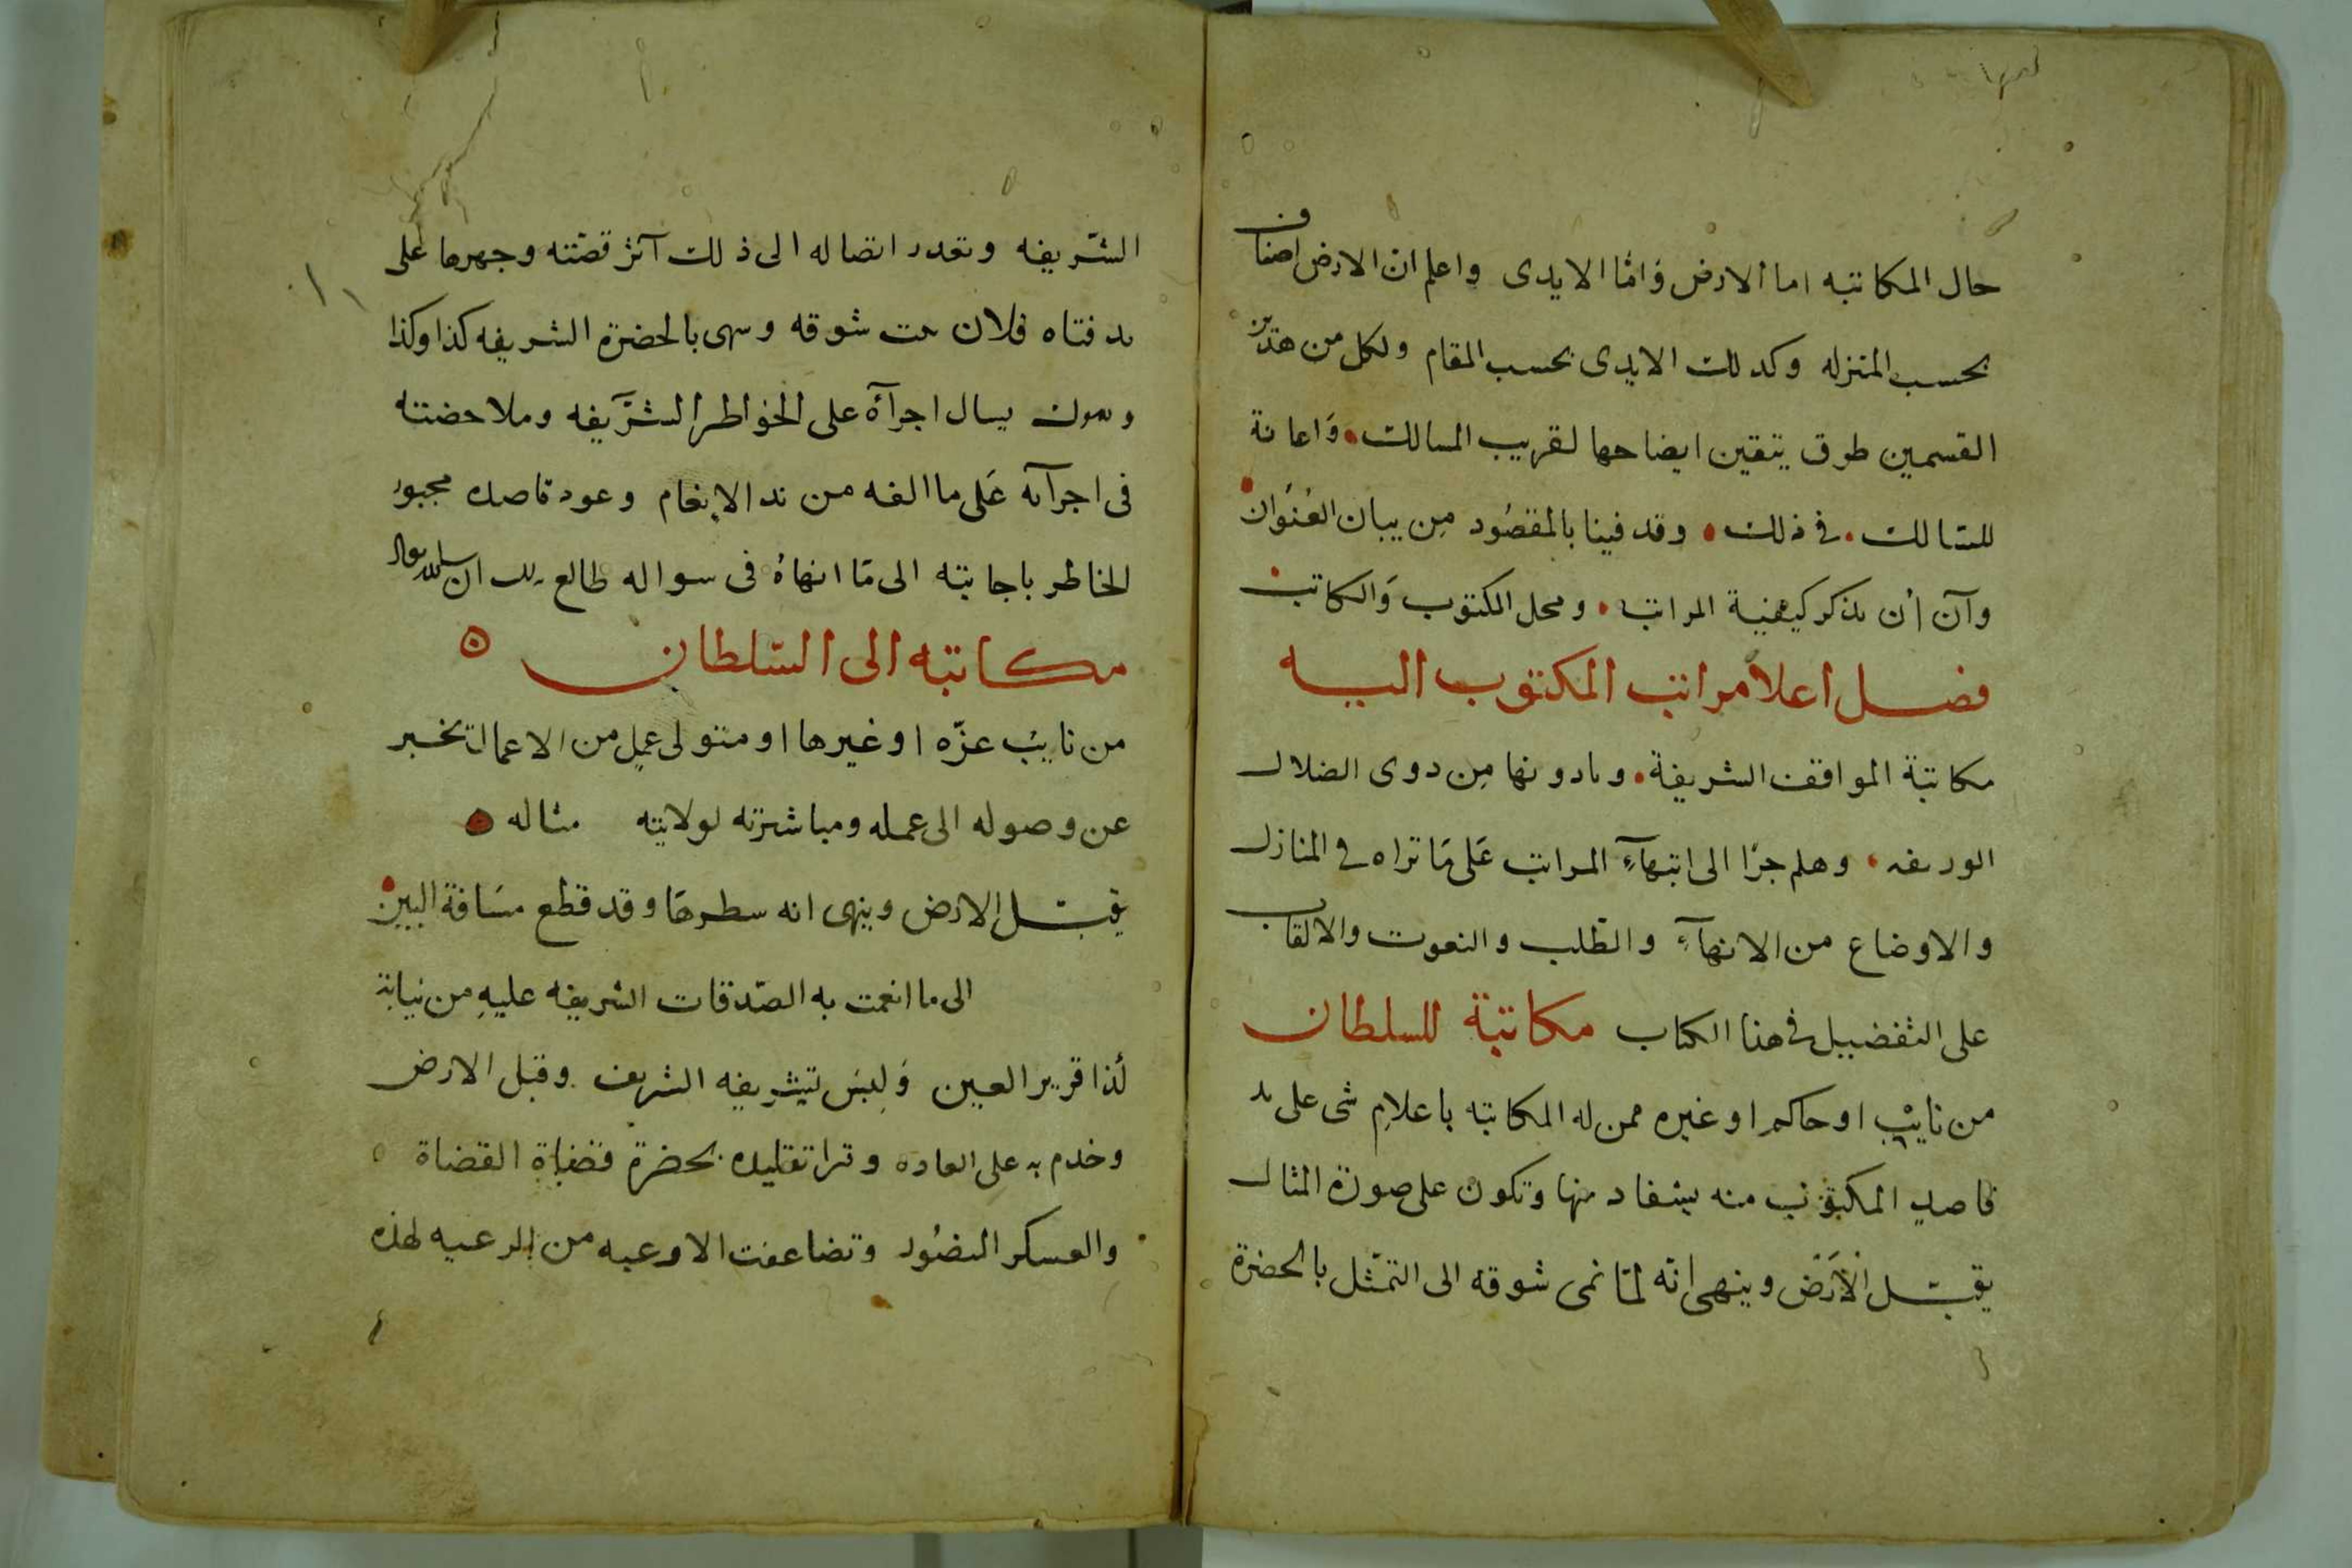 حال المكاتبه اما الارض وَامّا الايدى واعلم ان الارض اصناف
بحسب المنزله وكذلك الايدى بحسب المقام ولكل من هذين
القسمين طرق يتقين ايضاحها لقريب المسالك وَاعانة
للسّالك في ذلك وقد فينا بالمقصُود مِن بيان العُنوان
وآن أن نذكر كيفية المراتب ومحل المكتوب وَالكاتب
فصل اعلا مراتب المكتوب اليه
مكاتبة المواقف الشريفة وما دونها مِن ذوى الضلال
الوريفه وهلم جرّا الى انتهآءِ المراتب عَلى مَا تراه في المنازل
والاوضاع من الانهآءِ والطّلب والنعوت والالقاب
على التفضيل في هذا الكتاب مكاتبة للسلطان
من نايب او حاكم او غيره ممن له المكاتبه باعلامِ شى على يد
قاصدِ المكتوب منه يستفاد منها وتكون على صورة المثال
يقبّل الأرَض وينهى انّه لمّا نمى شوقه الى التمثّل بالحضرة
الشّريفه وتعدر اتصاله الى ذلك آثر قصّته وجهرها على
يد فتاه فلان شوقه وينهى بالحضرة الشريفه كذا وكذا
يسال اجرآءَه على الخواطر الشرَّيفه وملاحضته
فى اجرآئه عَلى ما الفه من الانعام وعود قاصده مجبور
الخاطر باجابته الى مَا انهاهُ فى سواله طالع بذلك ان شا الله تعالى
مكاتبه الى السّلطان
من نايب عزّه او غيرها او متولى عملٍ من الاعمال تخبر
عن وصوله الى عمله ومباشرته لولايته مثاله
يقبّل الارض وينهى انه سطرهَا وقد قطع مسَافة البين
الى ما انعمت به الصّدقات الشريفه عليهِ من نيابة
لذا قرير العين وَلبسَ تشريفه الشريف وقبل الارض
وخدم به على العاده وقرا تقليده بحضرة قضاة القضاة
والعسكر المنصُور وتضاعفت الادعيه من الرعيه لهذه